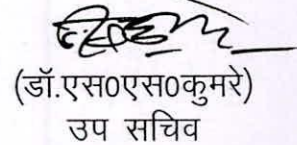 (डॉ.एस0एस0कुमरे)
उप सचिव